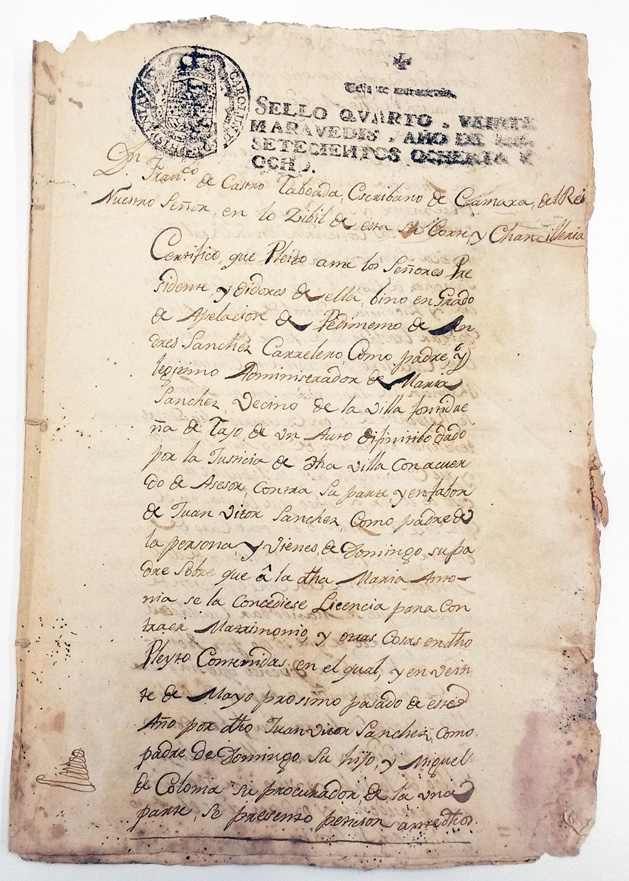 SELLO QVARTO, VEINTE
MARAVEDIS, AÑO DE MIL
SETECIENTOS OCHENTA Y
OCHO.
Dn Franco. de Castro Taboada, Escribano de Cámara, del Rei
Nuestro Señor, en lo Zibil de esta su Corte, y Chanzilleria
Certifico, que Pleito ante los Señores Pre
sidente, y oidores de ella, bino en Grado
de Apelacion de Pedimento de An
dres Sanchez Carretero Como padre, y
lexitimo Administrador de Maria
Sanchez Vecino de la Villa fontidue
ña de Tajo de un Auto difinitibo dado
por la Justicia de dha Villa Con acuer
do de Asesor, Contra Su parte, y en fabor
de Juan Vitor Sanchez, Como padre de
la persona, y Vienes, de Domingo, su pa
dre Sobre que â la dha Maria Anto-
nia se la Concediese Licencia para Con
traer Matrimonio, y otras Cosas en dho
Pleyto Contenidas, en el qual, y en vein
te de Mayo proximo pasado de este
Año por dho Juan Vitor Sanchez, Como
padre de Domingo Su hijo, y Miguel
de Coloma su procurador, de la una
parte, Se presento peticion ante dhos